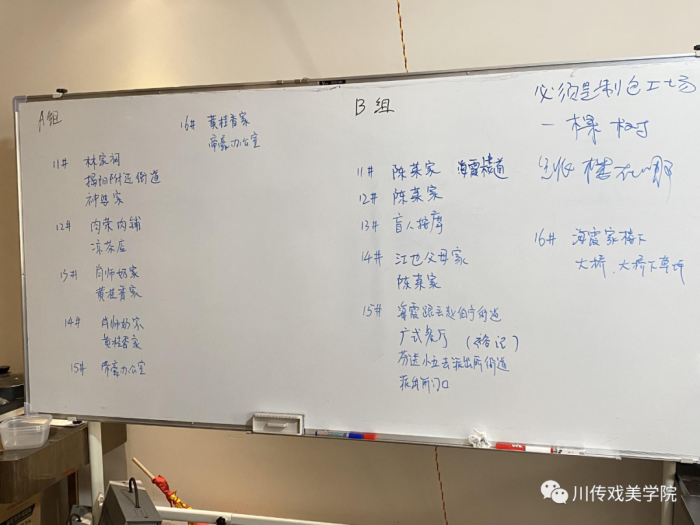 A组
11# 林家祠
揭阳附近街道
神婆家
12# 肉荣肉铺
凉茶店
13# 肖师奶家
黄桂香家
14# 肖师奶家
黄桂香家
15# 帝豪办公室
16# 黄桂香家
帝豪办公室
B组
11# 陈菜家 海霞楼道
12# 陈菜家
13# 盲人按摩
14# 江也父母家
陈菜家
15# 海霞跟云
广式餐厅
小五去派出所街道
派出所门口
必须是制包工场
一棵树
16# 海霞家楼下
大桥、大桥下车
川传戏美学院